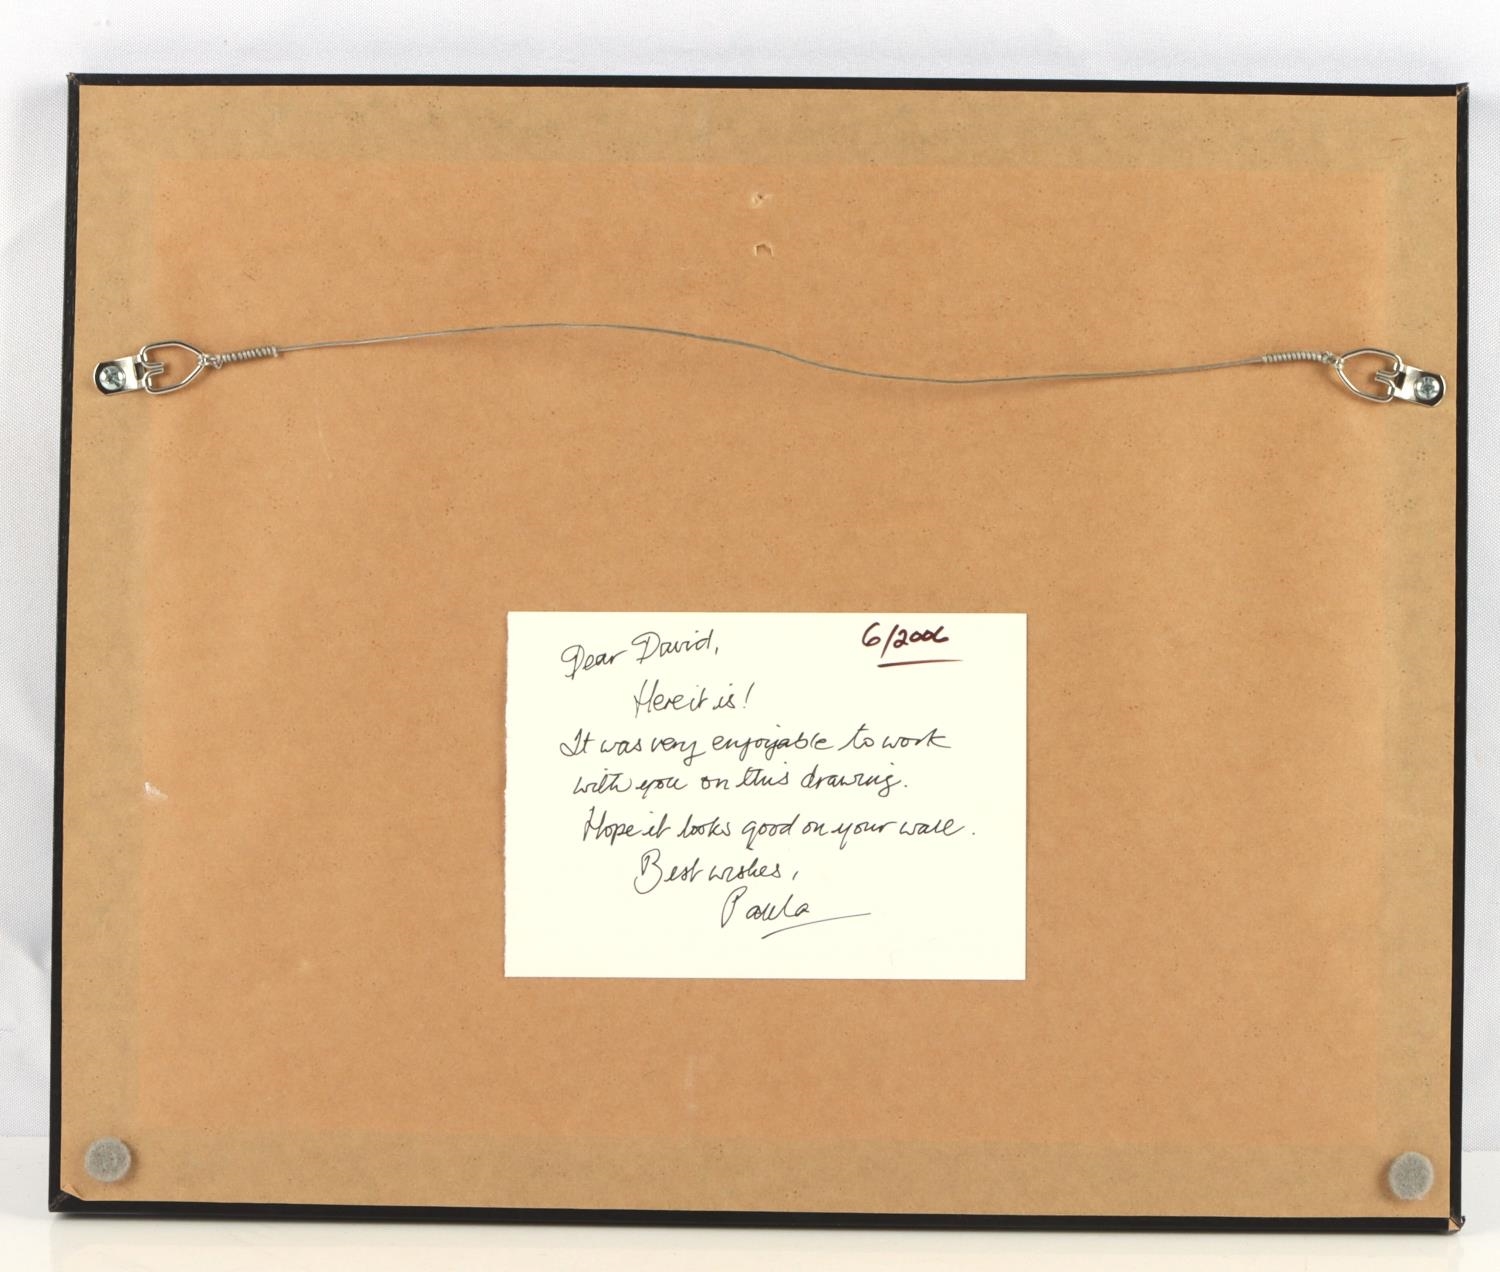 Dear David,
6/2006
Here it is!
It was very enjoyable to work
with you on this drawing.
Hope it looks good on your wall.
Best wishes,
Paula